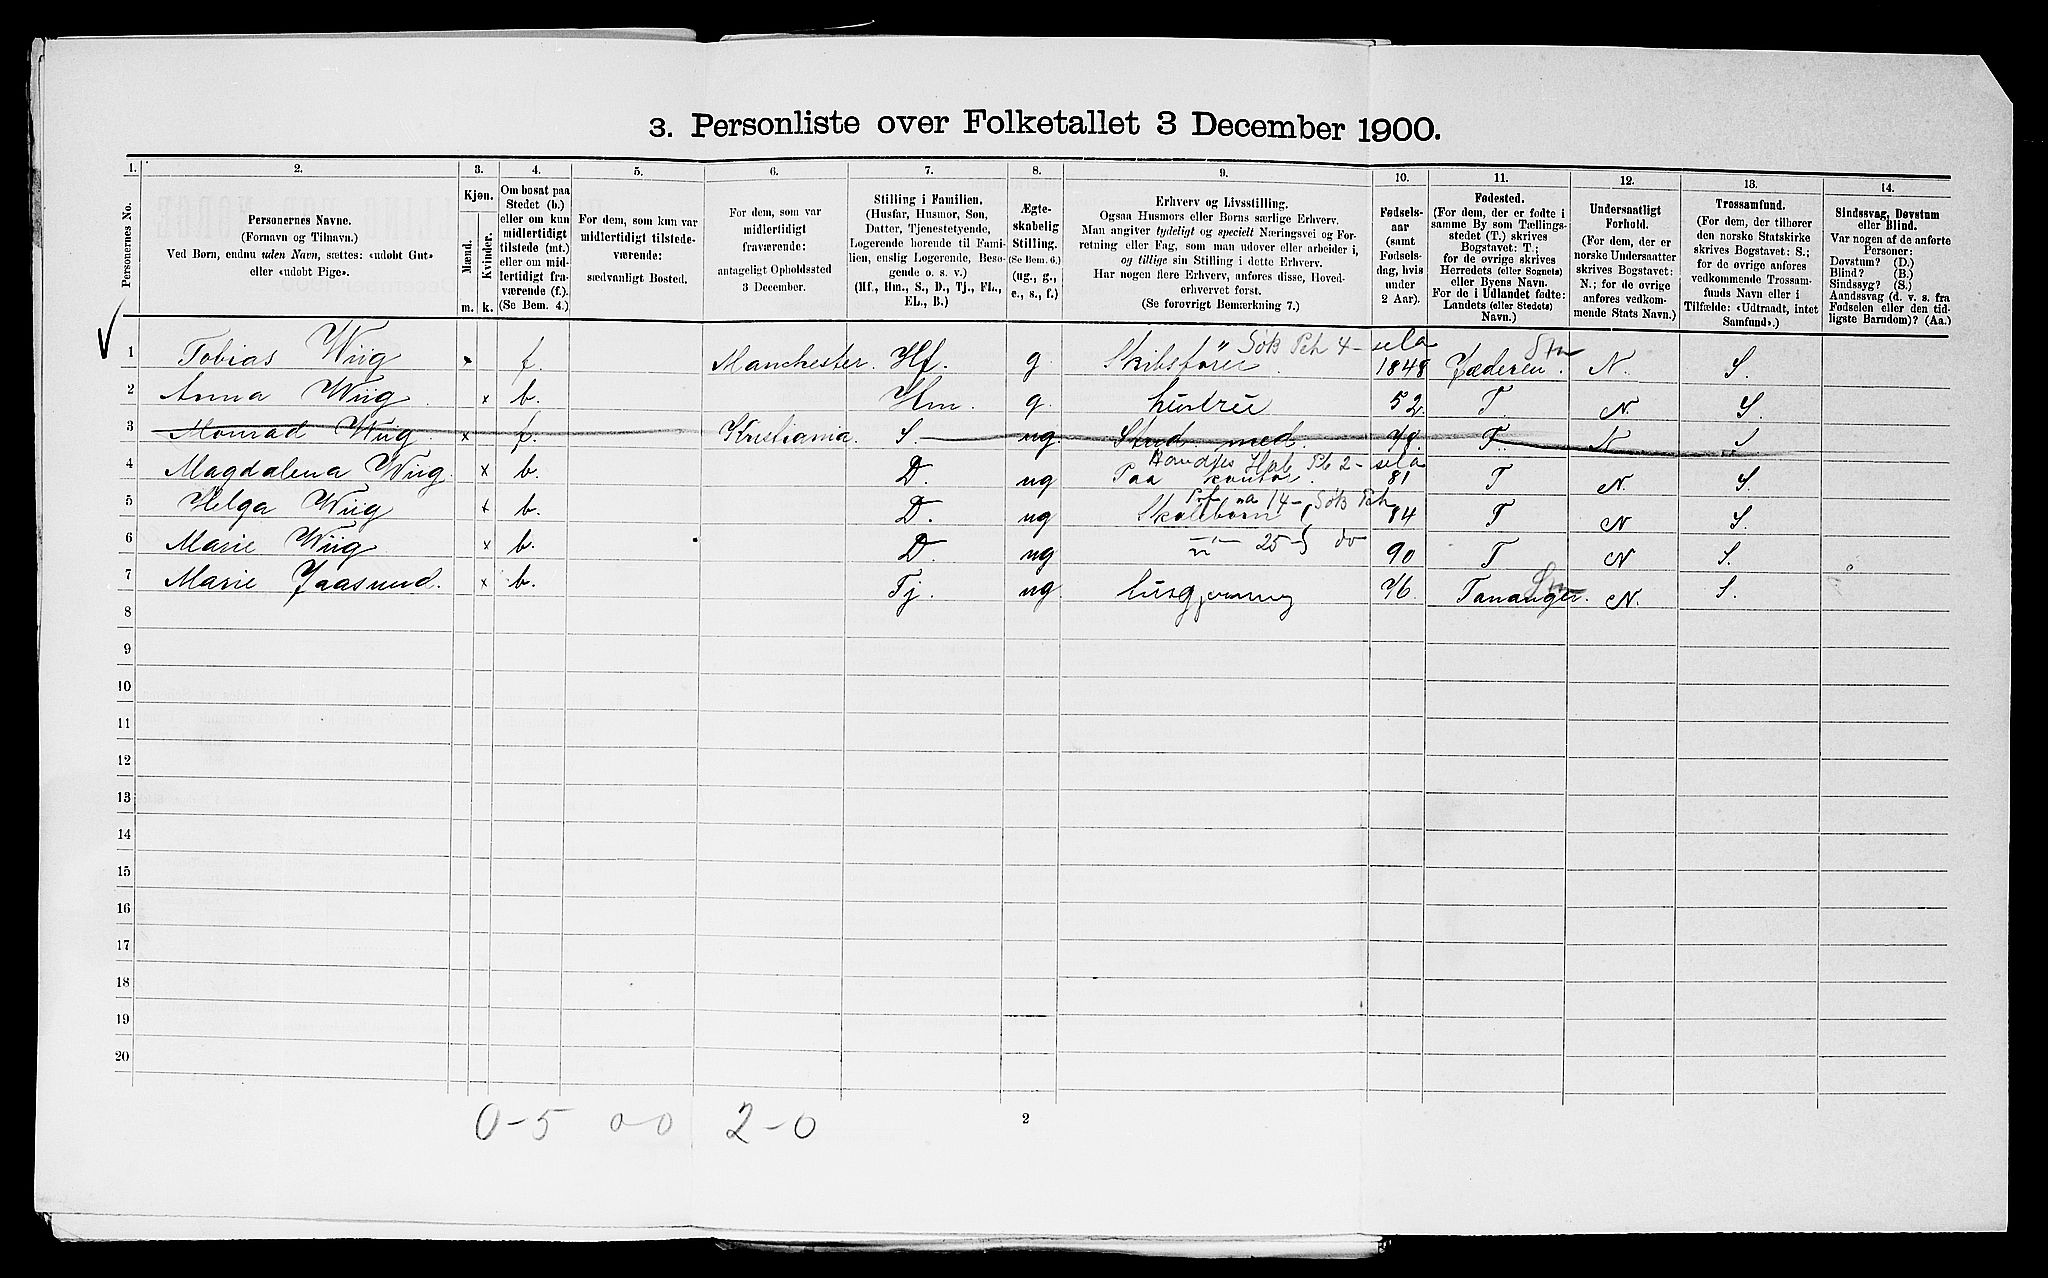 3. Personliste over Folketallet 3 December 1900.
1. 2. 3. 4. 5. 6. 7. 8. 9. 10. 11. 12. 13. 14.
Personernes No.
Personernes Navne.
(Fornavn og Tilnavn.)
Ved Børn, endnu uden Navn, sættes: «udøbt Gut»
eller «udøbt Pige».
Kjøn.
Mænd. Kvinder.
m. k.
Om bosat paa
Stedet (b.)
eller om kun
midlertidigt
tilstede (mt.)
eller om mid-
lertidigt fra-
værende (f.).
(Se Bem. 4.)
For dem, som kun var
midlertidigt tilstede-
værende:
sædvanligt Bosted.
For dem, som var
midlertidigt
fraværende:
antageligt Opholdssted
3 December.
Stilling i Familien.
(Husfar, Husmor, Søn,
Datter, Tjenestetyende,
Logerende hørende til Fami-
lien, enslig Logerende, Besø-
gende o. s. v.)
(Hf., Hm., S., D., Tj., FL.,
EL., B.)
Ægte-
skabelig
Stilling.
(Se Bem. 6.)
(ug., g.,
e., s., f.)
Erhverv og Livsstilling.
Ogsaa Husmors eller Børns særlige Erhverv.
Man angiver tydeligt og specielt Næringsvei og For-
retning eller Fag, som man udøver eller arbeider i,
og tillige sin Stilling i dette Erhverv.
Har nogen flere Erhverv, anføres disse, Hoved-
erhvervet først.
(Se forøvrigt Bemærkning 7.)
Fødsels-
aar
(samt
Fødsels-
dag, hvis
under
2 Aar).
Fødested.
(For dem, der er fødte i
samme By som Tællings-
stedet (T.) skrives
Bogstavet: T.;
for de øvrige skrives
Herredets (eller Sognets)
eller Byens Navn.
For de i Udlandet fødte:
Landets (eller Stedets)
Navn.)
Undersaatligt
Forhold.
(For dem, der er
norske Undersaatter
skrives Bogstavet:
N.; for de øvrige
anføres vedkom-
mende Stats Navn.)
Trossamfund.
(For dem, der tilhører
den norske Statskirke
skrives Bogstavet: S.;
for de øvrige anføres
vedkommende Trossam-
funds Navn eller i
Tilfælde: «Udtraadt, intet
Samfund».)
Sindssvag, Døvstum
eller Blind.
Var nogen af de anførte
Personer:
Døvstum? (D.)
Blind? (B.)
Sindssyg? (S.)
Aandssvag (d. v. s. fra
Fødselen eller den tid-
ligste Barndom)? (Aa.)
1 Tobias Wiig x f. Manchester. Hf. g. Skibsfører 1848 Jæderen. N. S.
2 Anna Wiig. x b. Hm. g. hustru 52 T. N. S.
3 Monrad Wiig. x f. Kristiania. S. ug. Stud. med. 78. T. N S
4 Magdalena Wiig. x b. D. ug Paa kontor. 81 T N. S.
5 Helga Wiig x b. D. ug Skolebarn 84 T N S.
6 Marie Wiig x b. D. ug 90 T N S.
7 Marie Jaasund. x b. Tj. ug husgjerning 76. Tananger. N. S.
8
9
10
11
12
13
14
15
16
17
18
19
20
0-5 00 2-0
2